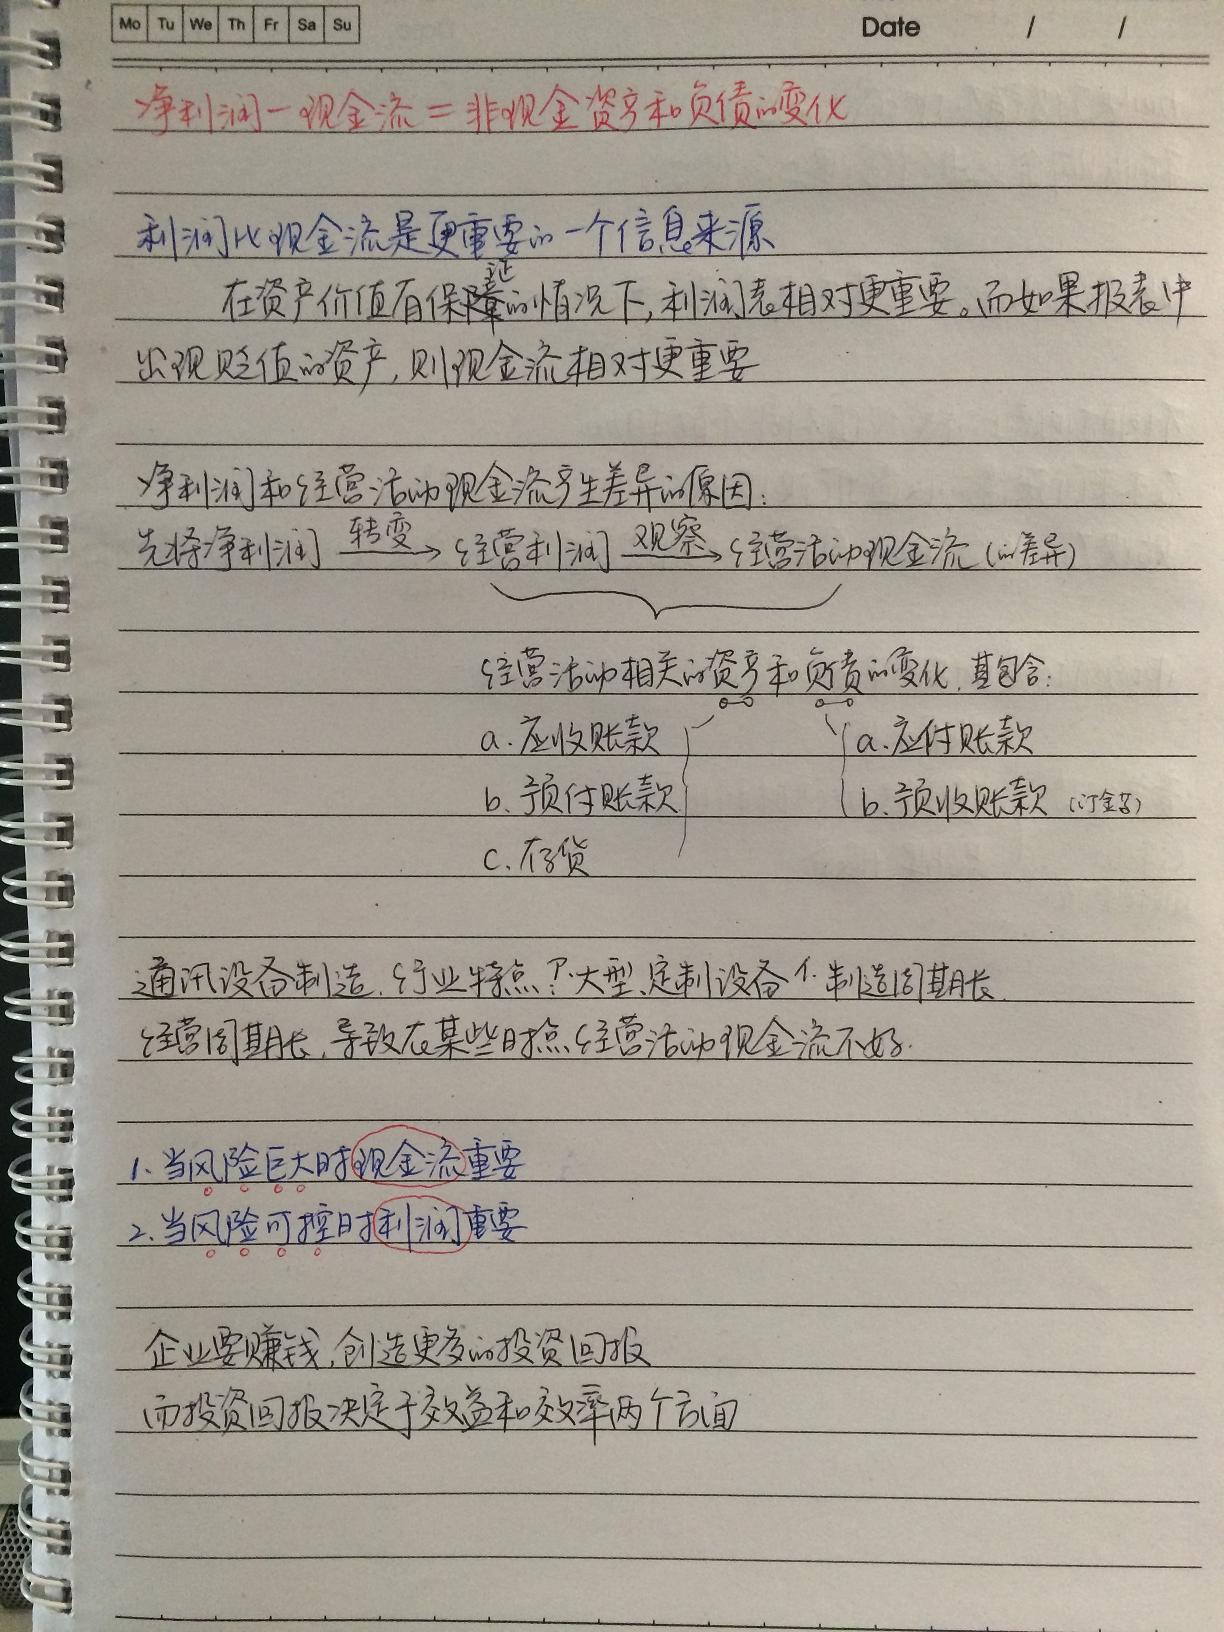 Mo Tu We Th Fr Sa Su
Date / /
净利润－现金流＝非现金资产和负债的变化
利润比现金流是更重要的一个信息来源
证
在资产价值有保障的情况下,利润表相对更重要。而如果报表中
出现贬值的资产,则现金流相对更重要
净利润和经营活动现金流产生差异的原因:
先将净利润 转变→ 经营利润 观察→ 经营活动现金流(的差异)
经营活动相关的资产和负债的变化,其包含:
a.应收账款 a.应付账款
b.预付账款 b.预收账款(订金等)
c.存货
通讯设备制造,行业特点?大型、定制设备 个.制造周期长
经营周期长,导致在某些时点,经营活动现金流不好.
1.当风险巨大时现金流重要
2.当风险可控时利润重要
企业要赚钱,创造更多的投资回报
而投资回报决定于效益和效率两个方面